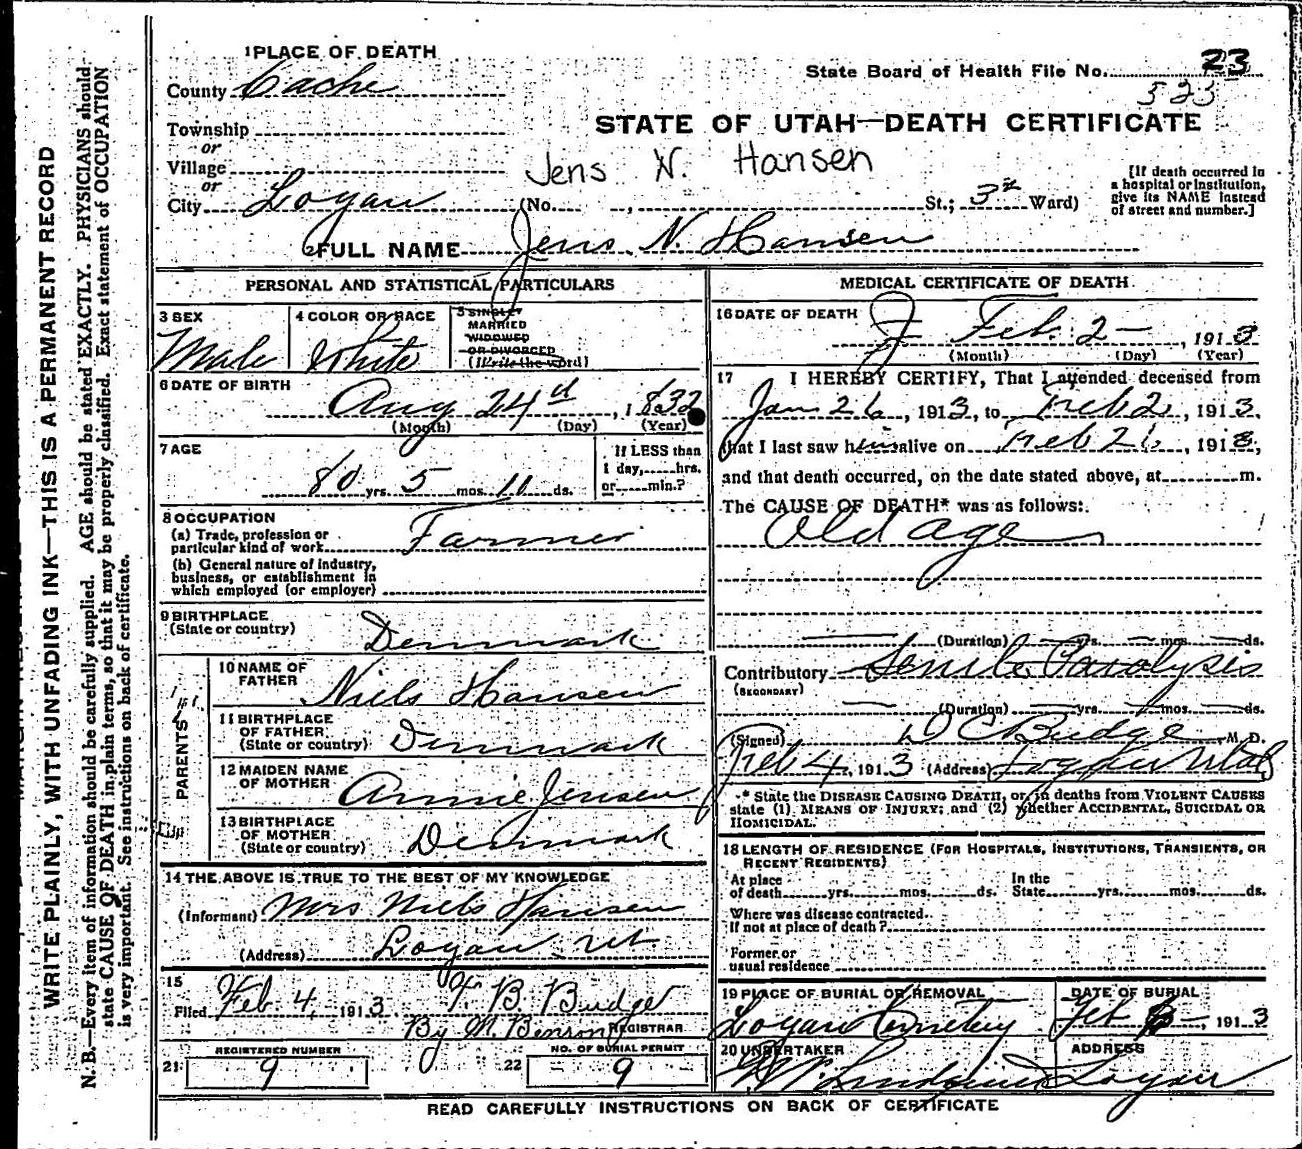 1 PLACE OF DEATH
State Board of Health File No. 23
County Cache
523
STATE OF UTAH—DEATH CERTIFICATE
Township
or
Village
Jens N. Hansen
or
City Logan (No. , St.; 3rd Ward)
[If death occurred in
a hospital or institution,
give its NAME instead
of street and number.]
2 FULL NAME Jens N. Hansen
PERSONAL AND STATISTICAL PARTICULARS
3 SEX
Male
4 COLOR OR RACE
White
5 SINGLE,
MARRIED
WIDOWED
OR DIVORCED
(Write the word)
6 DATE OF BIRTH
Aug 24th, 1832
(Month) (Day) (Year)
7 AGE
80 yrs. 5 mos. 11 ds.
If LESS than
1 day, hrs.
or min.?
8 OCCUPATION
(a) Trade, profession or
particular kind of work Farmer
(b) General nature of industry,
business, or establishment in
which employed (or employer)
9 BIRTHPLACE
(State or country) Denmark
PARENTS
10 NAME OF
FATHER Niels Hansen
11 BIRTHPLACE
OF FATHER
(State or country) Denmark
12 MAIDEN NAME
OF MOTHER Annie Jensen
13 BIRTHPLACE
OF MOTHER
(State or country) Denmark
14 THE ABOVE IS TRUE TO THE BEST OF MY KNOWLEDGE
(Informant) Mrs Niels Hansen
(Address) Logan Ut
15
Filed Feb 4, 1913 T. B. Budge
By M. Benson REGISTRAR
21 REGISTERED NUMBER
9
22 NO. OF BURIAL PERMIT
9
MEDICAL CERTIFICATE OF DEATH
16 DATE OF DEATH
Feb. 2, 1913
(Month) (Day) (Year)
17 I HEREBY CERTIFY, That I attended deceased from
Jan 26, 1913, to Feb 2, 1913,
that I last saw him alive on Feb 26, 1913,
and that death occurred, on the date stated above, at m.
The CAUSE OF DEATH* was as follows:
Old age
(Duration) yrs. mos. ds.
Contributory Senile Paralysis
(SECONDARY)
(Duration) yrs. mos. ds.
(Signed) D C Budge M. D.
Feb 4, 1913 (Address) Logan Utah
* State the DISEASE CAUSING DEATH, or, in deaths from VIOLENT CAUSES
state (1) MEANS OF INJURY; and (2) whether ACCIDENTAL, SUICIDAL OR
HOMICIDAL.
18 LENGTH OF RESIDENCE (FOR HOSPITALS, INSTITUTIONS, TRANSIENTS, OR
RECENT RESIDENTS)
At place
of death yrs. mos. ds.
In the
State yrs. mos. ds.
Where was disease contracted
If not at place of death?
Former or
usual residence
19 PLACE OF BURIAL OR REMOVAL
Logan Cemetery
DATE OF BURIAL
Feb 1913
20 UNDERTAKER
ADDRESS
Logan
READ CAREFULLY INSTRUCTIONS ON BACK OF CERTIFICATE
WRITE PLAINLY, WITH UNFADING INK—THIS IS A PERMANENT RECORD
N. B.—Every item of information should be carefully supplied. AGE should be stated EXACTLY. PHYSICIANS should
state CAUSE OF DEATH in plain terms, so that it may be properly classified. Exact statement of OCCUPATION
is very important. See instructions on back of certificate.